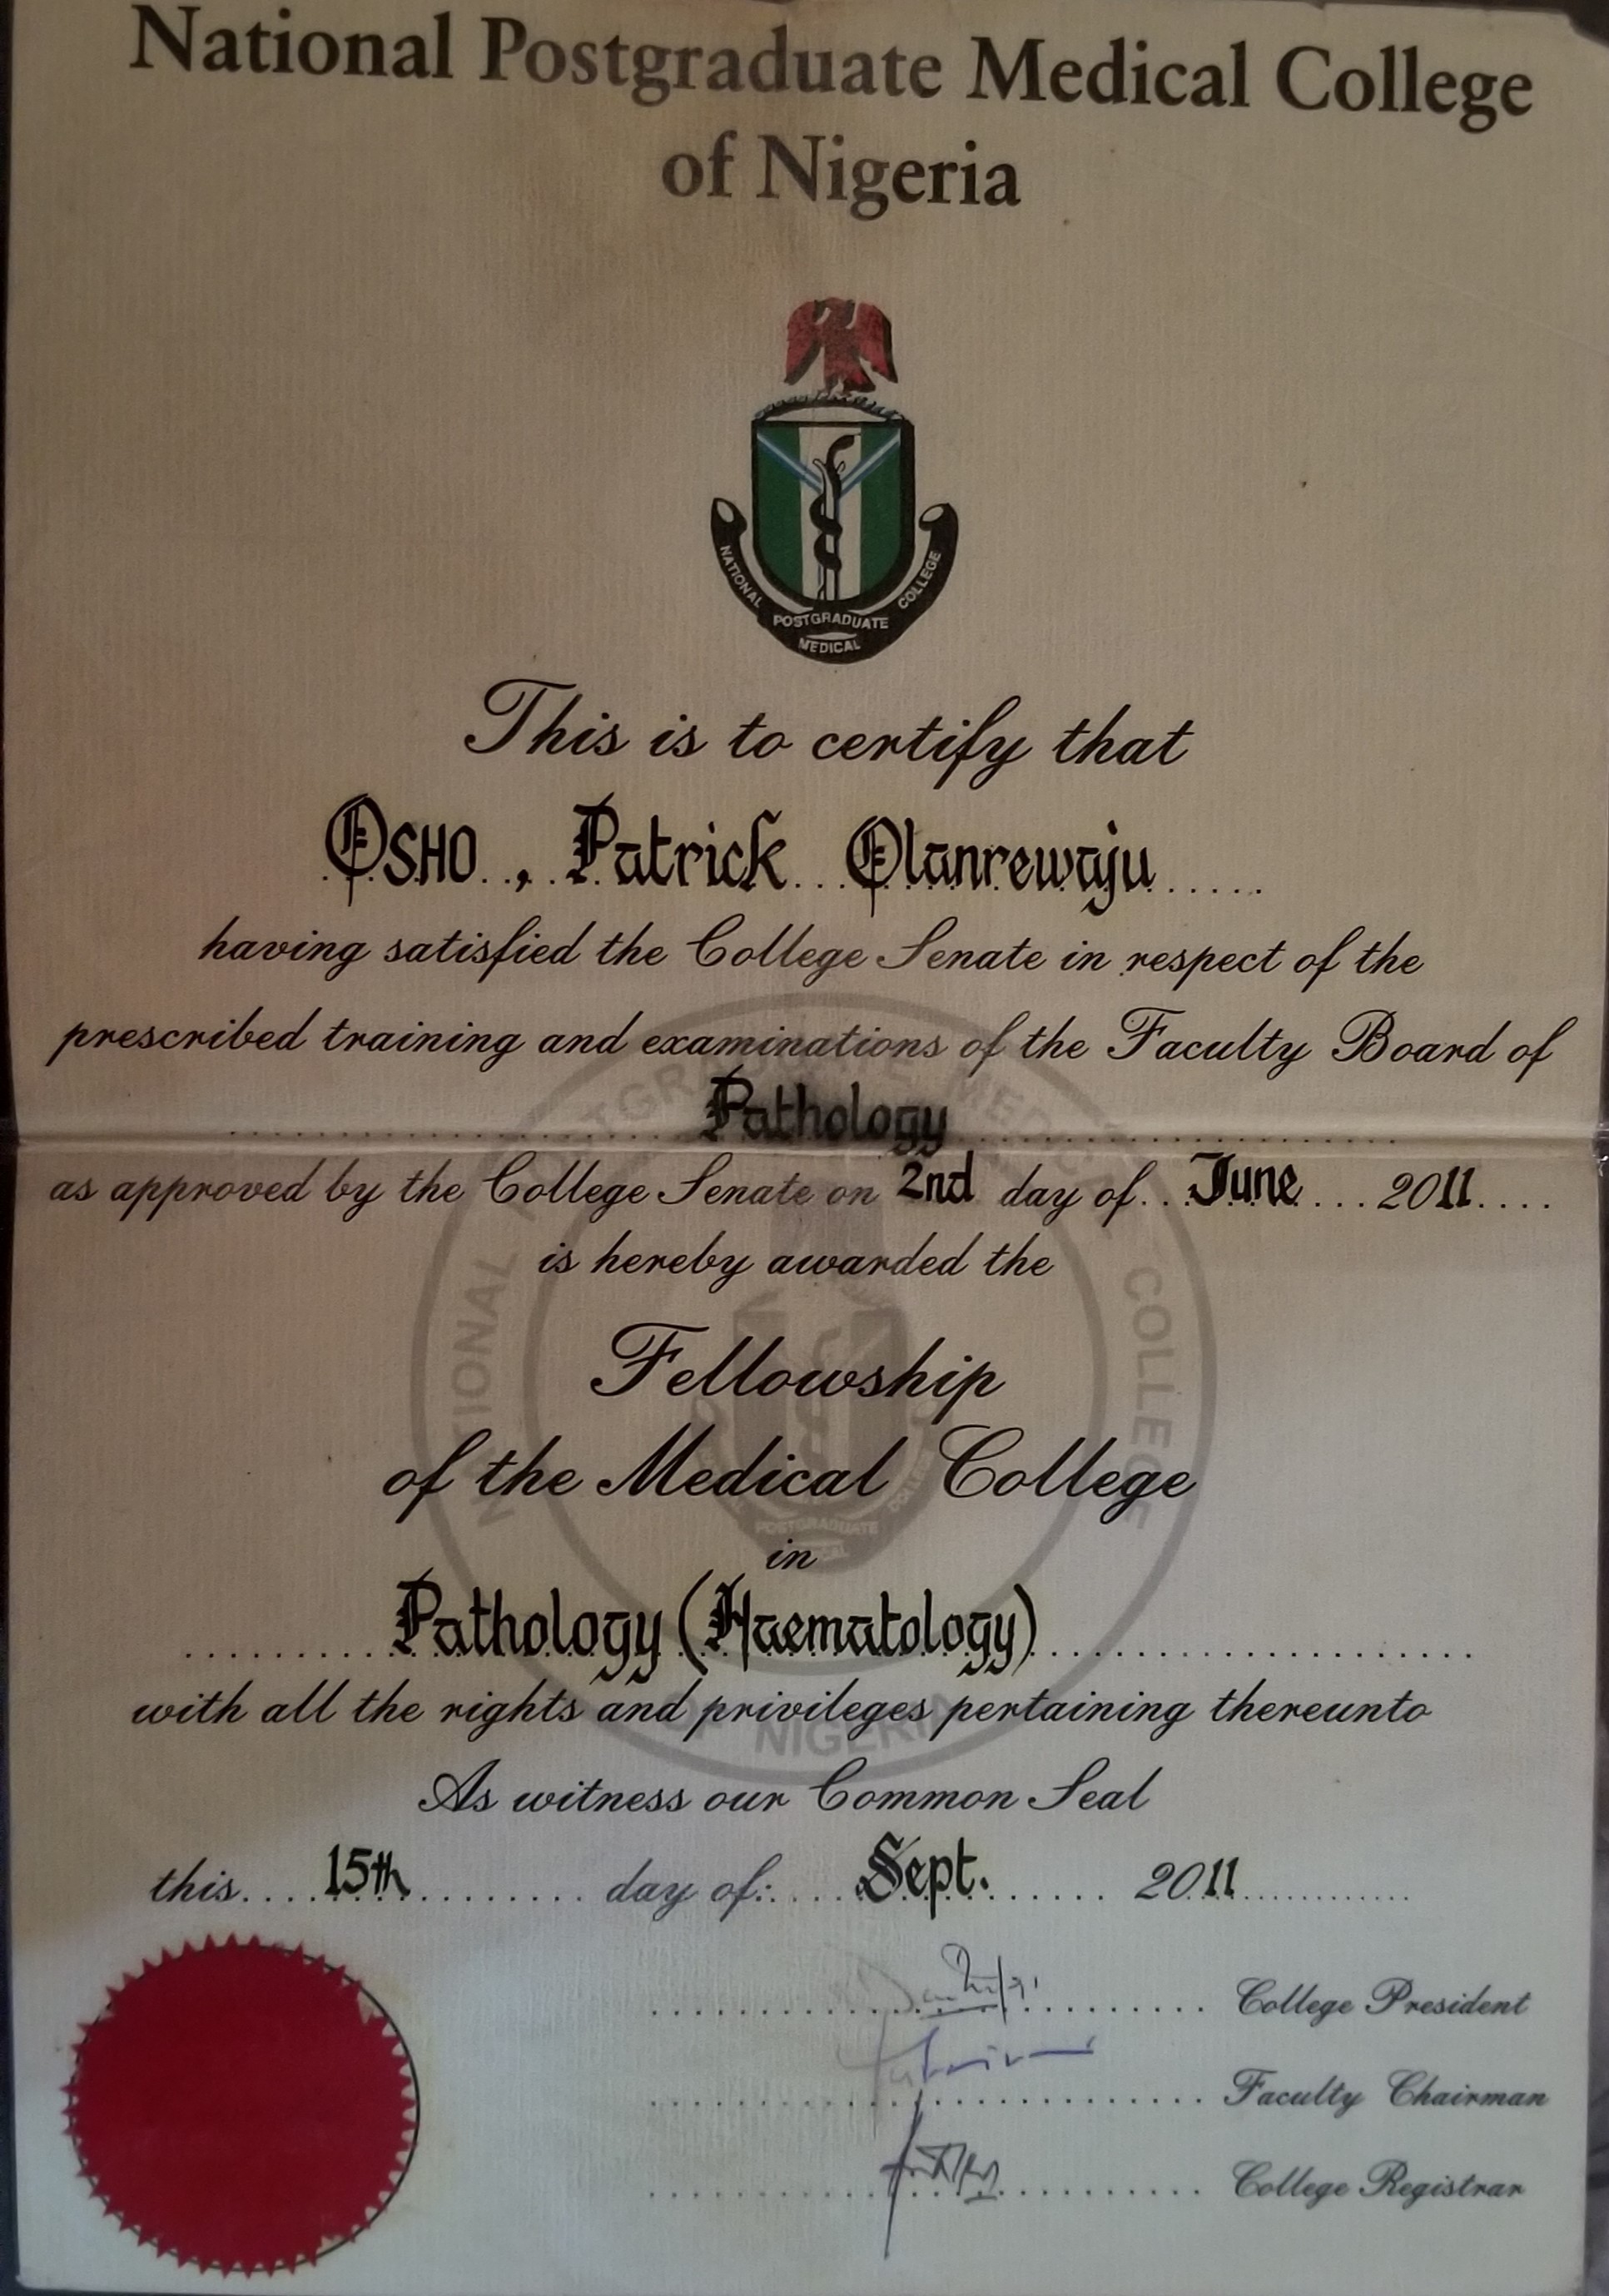 National Postgraduate Medical College
of Nigeria
NATIONAL POSTGRADUATE MEDICAL COLLEGE
This is to certify that
OSHO, Patrick Olanrewaju
having satisfied the College Senate in respect of the
prescribed training and examinations of the Faculty Board of
Pathology
as approved by the College Senate on 2nd day of June 2011
is hereby awarded the
Fellowship
of the Medical College
in
Pathology (Haematology)
with all the rights and privileges pertaining thereunto
As witness our Common Seal
this 15th day of: Sept. 2011
College President
Faculty Chairman
College Registrar
NATIONAL POSTGRADUATE MEDICAL COLLEGE
NIGERIA